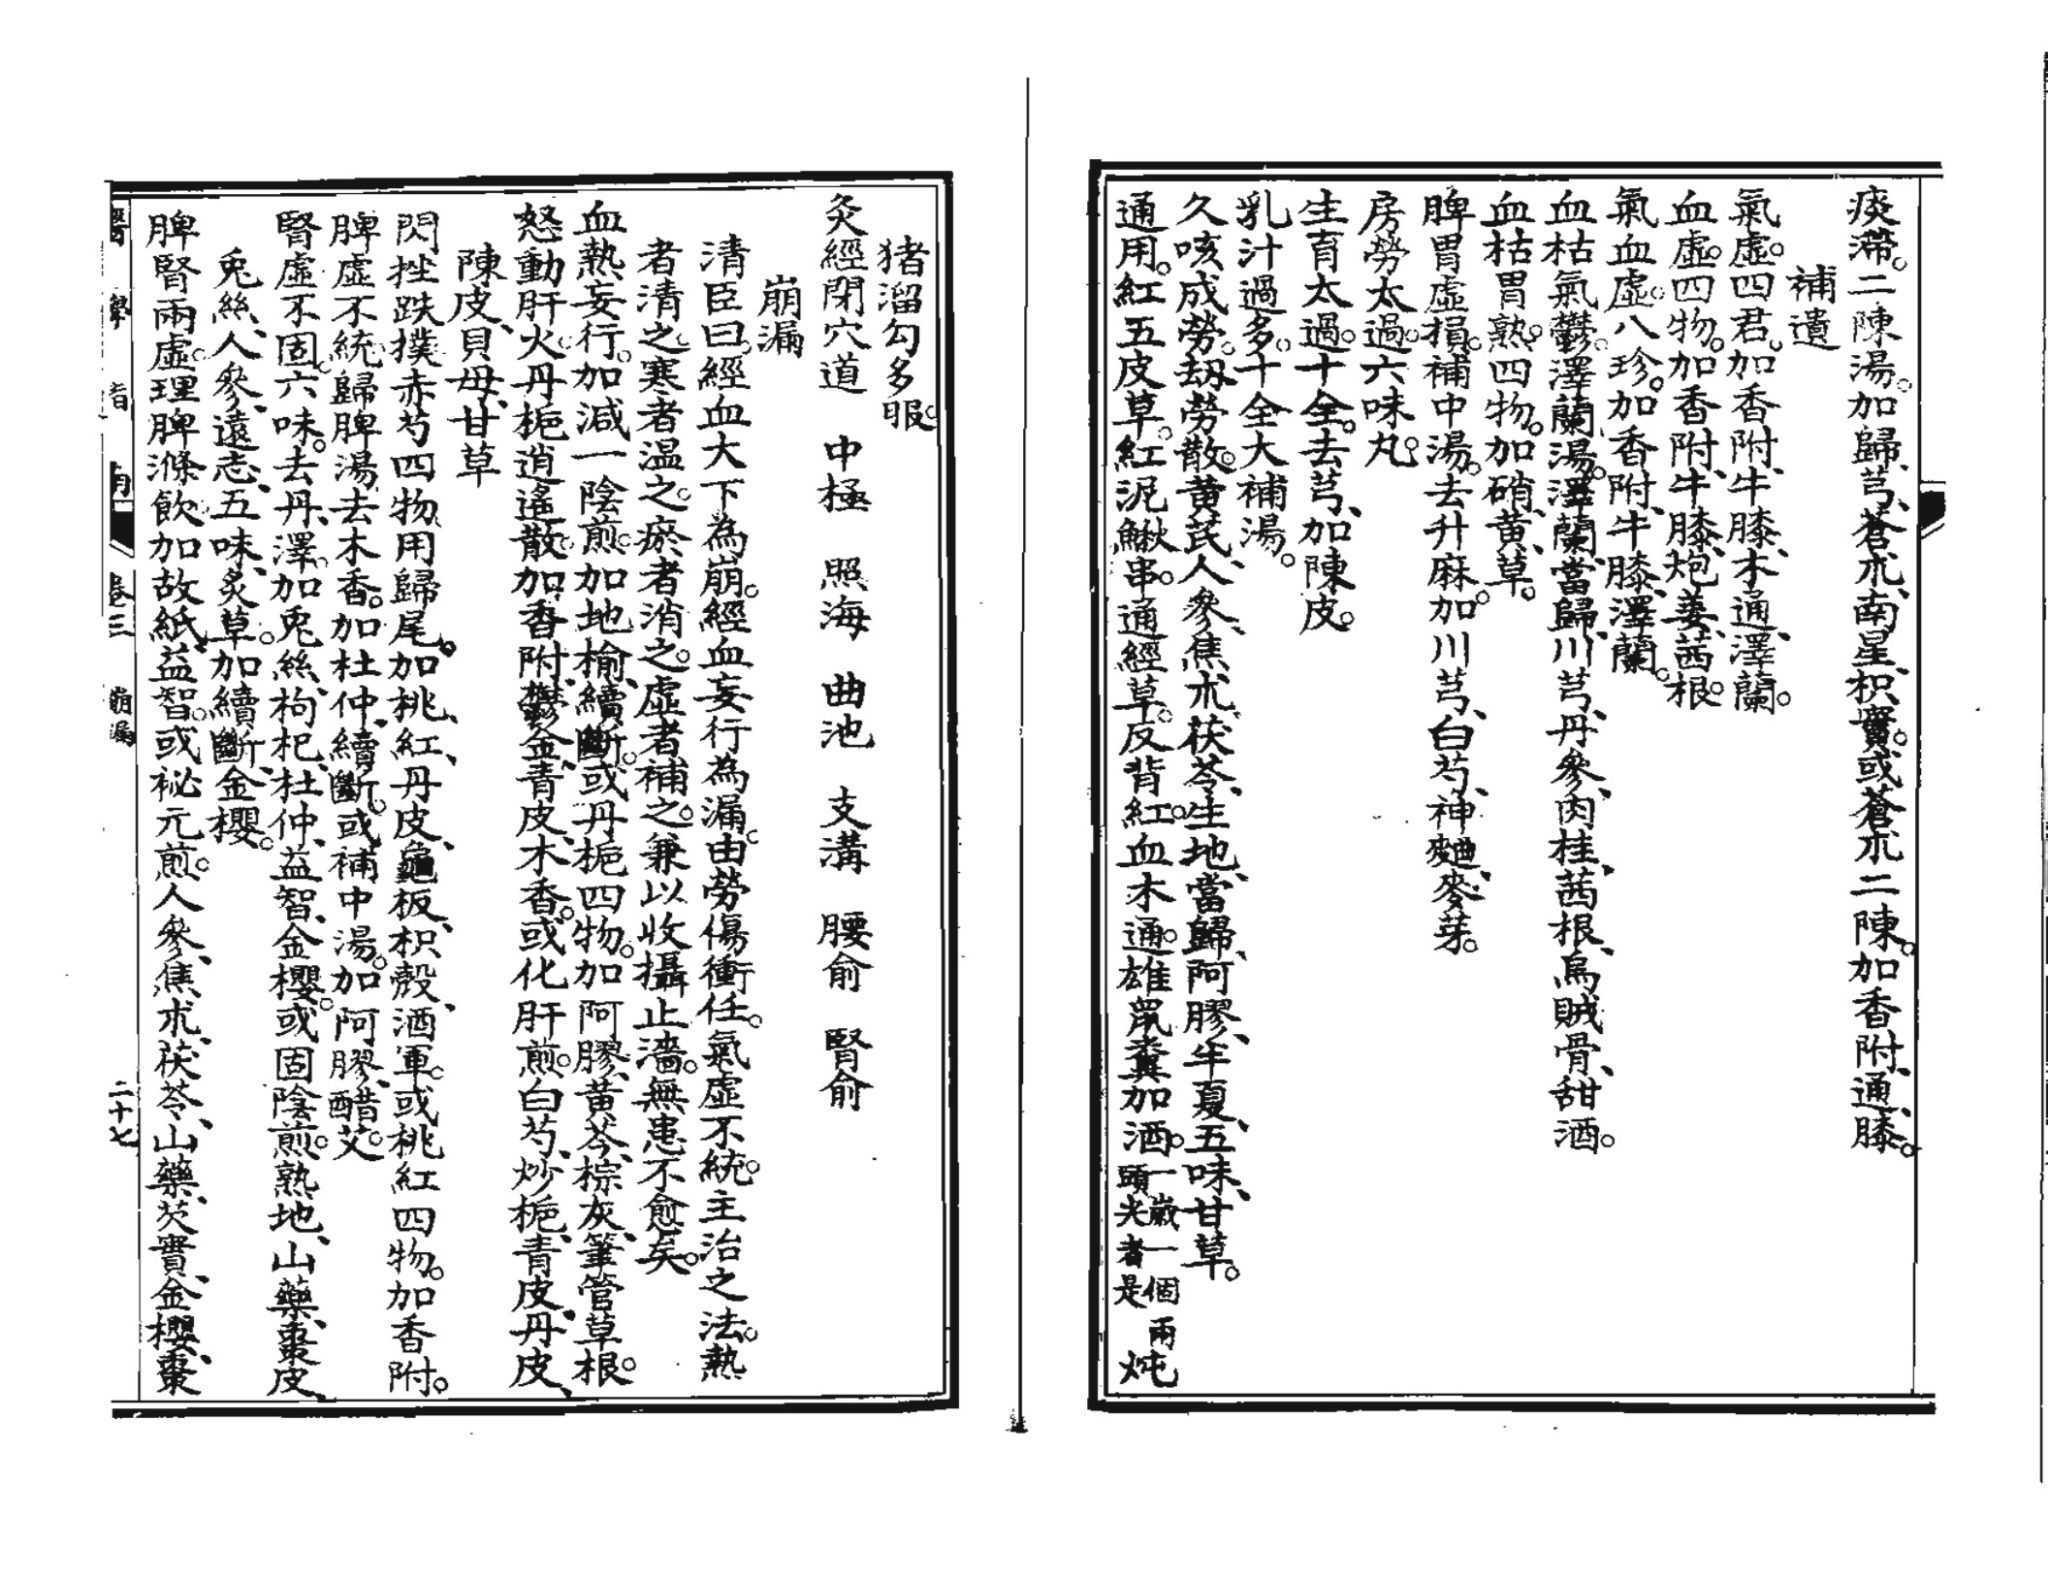 痰滯。二陳湯。加歸、芎、蒼朮、南星、枳實。或蒼朮二陳。加香附、通、膝。
補遺
氣虛。四君。加香附、牛膝、木通、澤蘭。
血虛。四物。加香附、牛膝、炮姜、茜根。
氣血虛。八珍。加香附、牛膝、澤蘭。
血枯氣鬱。澤蘭湯。澤蘭、當歸、川芎、丹參、肉桂、茜根、烏賊骨、甜酒。
血枯胃熱。四物。加硝、黃、草。
脾胃虛損。補中湯。去升麻。加川芎、白芍、神麯、麥芽。
房勞太過。六味丸。
生育太過。十全。去芎、加陳皮。
乳汁過多。十全大補湯。
久咳成勞。劫勞散。黃芪、人參、焦朮、茯苓、生地、當歸、阿膠、半夏、五味、甘草。
通用。紅五皮草。紅泥鰍串。通經草。反背紅。血木通。雄鼠糞加酒。一歲一個兩頭尖者是炖
猪溜勾多服。
灸經閉穴道 中極 照海 曲池 支溝 腰俞 腎俞
崩漏
清臣曰。經血大下為崩。經血妄行為漏。由勞傷衝任。氣虛不統。主治之法。熱
者清之。寒者溫之。瘀者消之。虛者補之。兼以收攝止濇。無患不愈矣。
血熱妄行。加減一陰煎。加地榆、續斷。或丹梔四物。加阿膠、黃芩、棕灰、筆管草根。
怒動肝火。丹梔逍遙散。加香附、鬱金、青皮、木香。或化肝煎。白芍、炒梔、青皮、丹皮、
陳皮、貝母、甘草
閃挫跌撲。赤芍四物用歸尾。加桃、紅、丹皮、龜板、枳殼、酒軍。或桃紅四物。加香附。
脾虛不統。歸脾湯。去木香。加杜仲、續斷。或補中湯。加阿膠、醋艾。
腎虛不固。六味。去丹、澤。加兎絲、枸杞、杜仲、益智、金櫻。或固陰煎。熟地、山藥、棗皮、
兎絲、人參、遠志、五味、炙草。加續斷、金櫻。
脾腎兩虛。理脾滌飲。加故紙、益智。或祕元煎。人參、焦朮、茯苓、山藥、芡實、金櫻、棗
醫學指南 卷三 崩漏 二十七